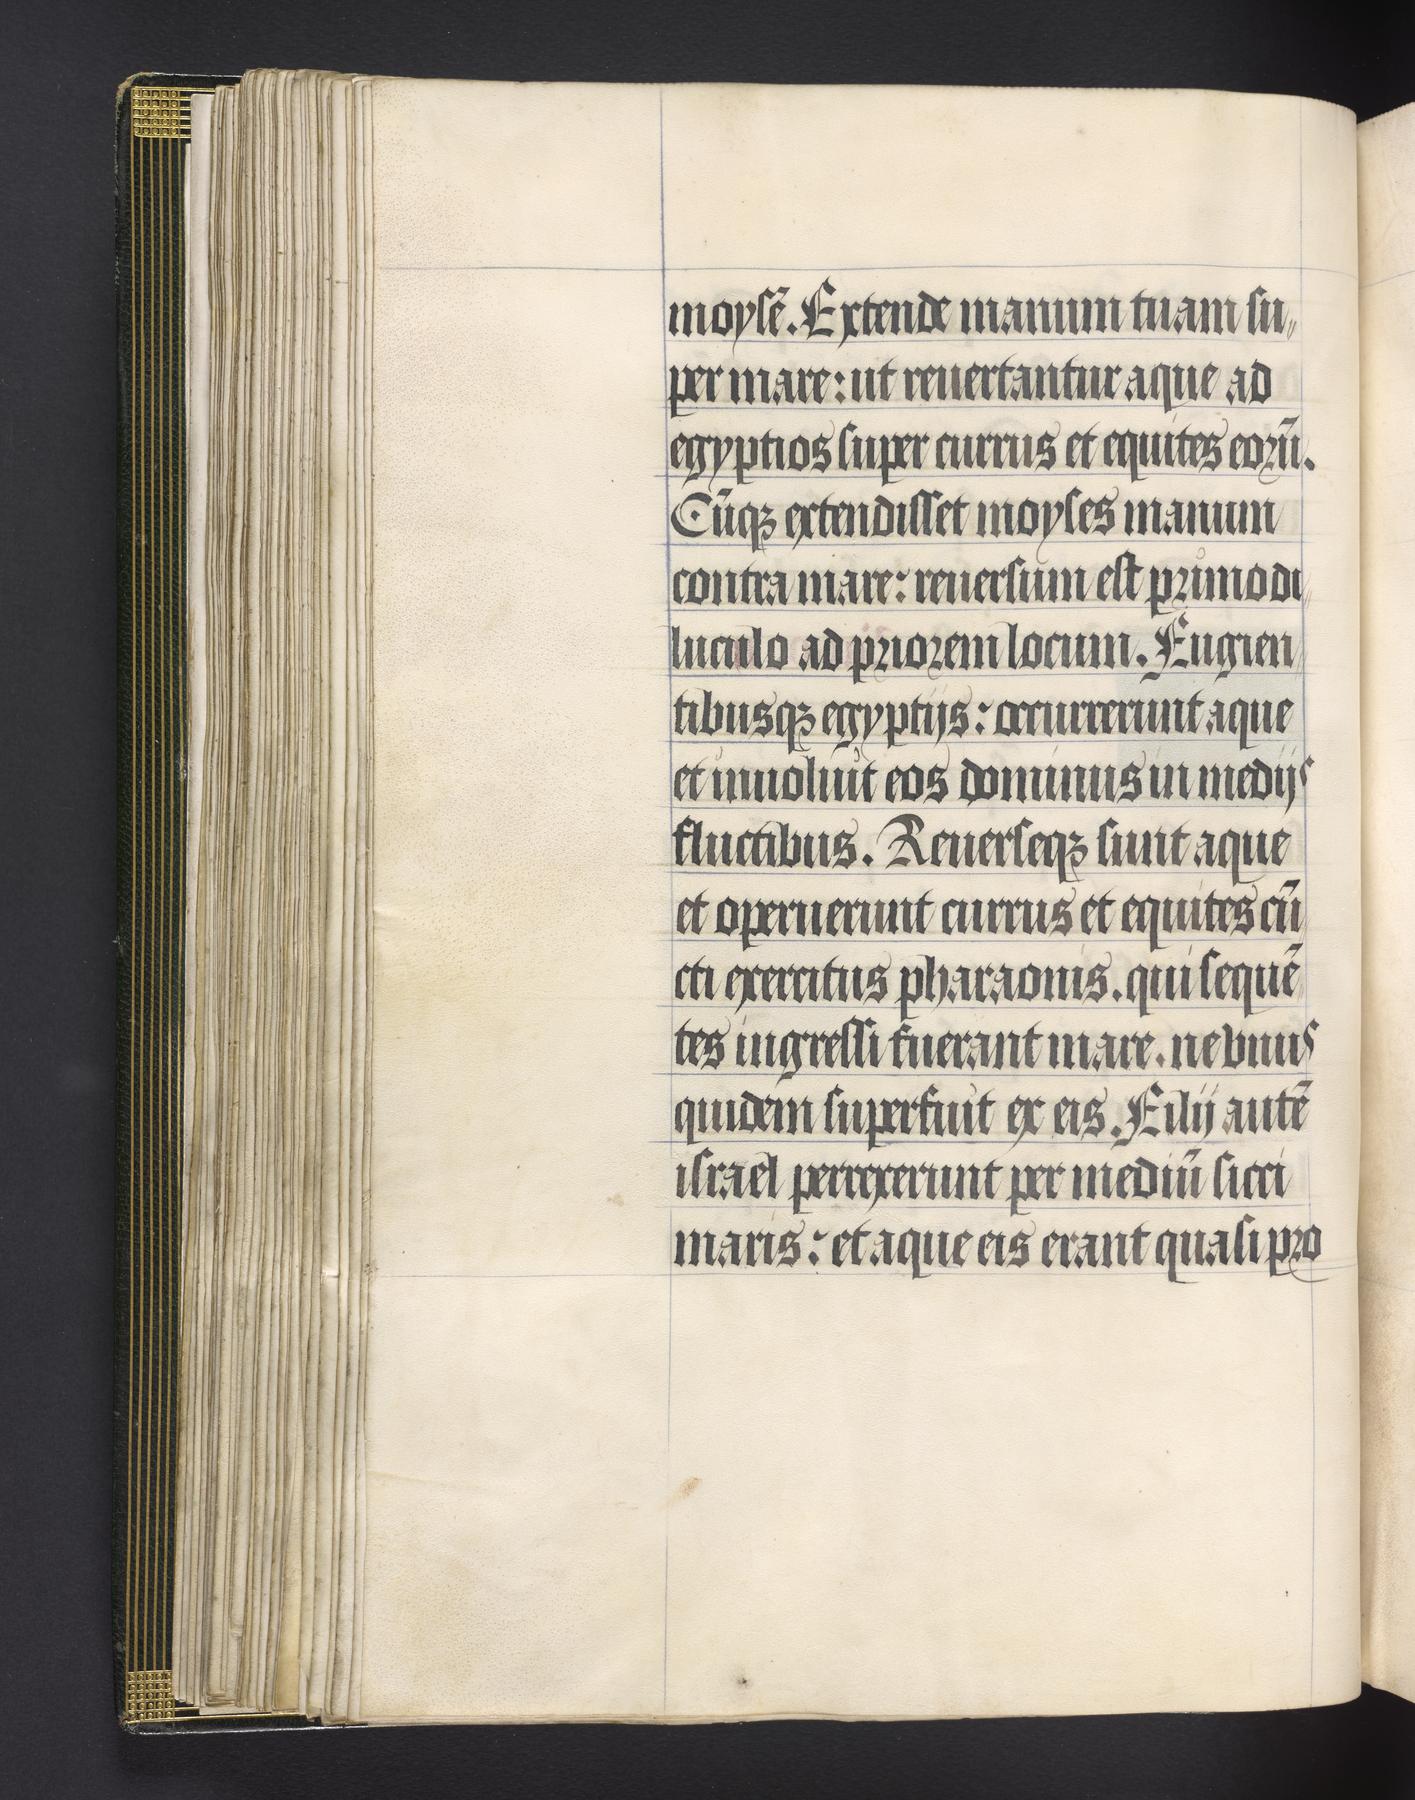 moysē. Extende manum tuam su„
per mare: ut reuertantur aque ad
egyptios super currus et equites eorū.
Cūqꝫ extendisset moyses manum
contra mare: reuersum est primo di„
luculo ad priorem locum. Fugien„
tibusqꝫ egyptijs: occurrerunt aque
et inuoluit eos dominus in medijs
fluctibus. Reuerseqꝫ sunt aque
et operuerunt currus et equites cū
cti exercitus pharaonis. qui sequē„
tes ingressi fuerant mare. ne vnus
quidem superfuit ex eis. Filij autē
israel perrexerunt per mediū sicci
maris: et aque eis erant quasi pro